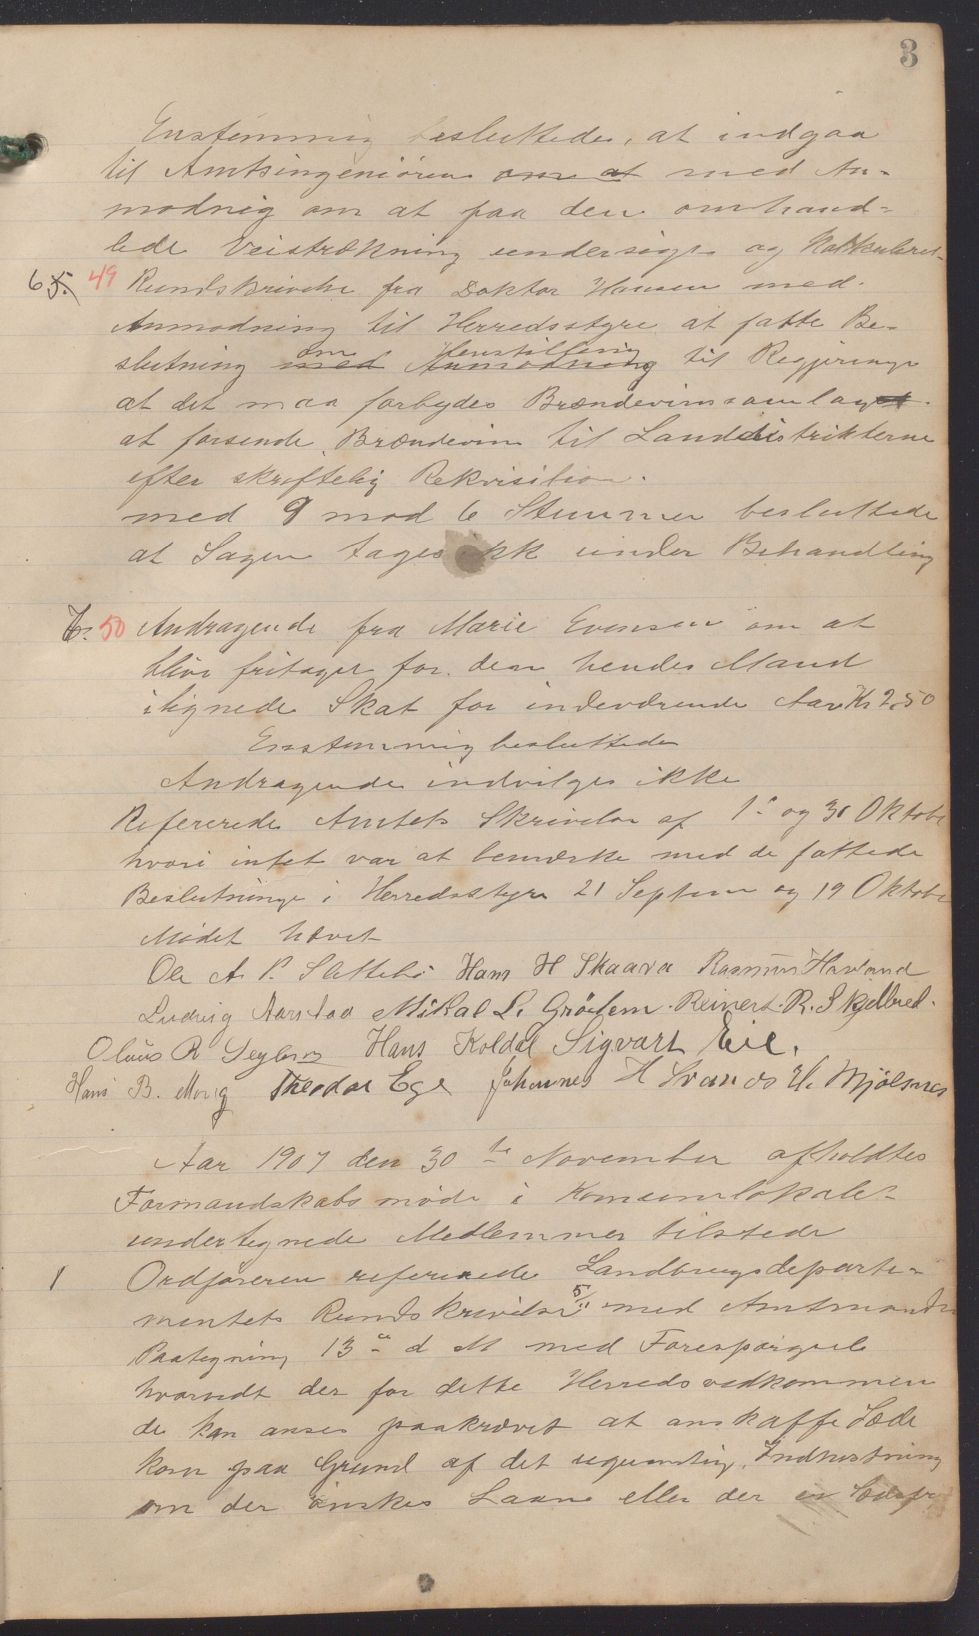 3
Enstemmig besluttedes, at indgaa
til Amtsingeniøren om at med An-
modnig om at paa den omhand-
lede Veistrækning undersøge og
6 5. 49 Rundskrivelse fra Doktor Hansen med
Anmodning til Herredsstyre at fatte Be-
slutning med om Anmodning Henstilling til Regjeringe
at det maa forbydes Brændevinssamlaget
at forsende Brændevin til Landdistrikterne
efter skriftelig Rekvisition.
med 9 mod 6 Stemmer besluttede
at Sagen tages ikk under Behandling
7. 50 Andragende fra Marie Evensen om at
blive fritaget for den hendes Mand
ilignede Skat for indeværende Aar Kr 2,50
Enstemmig besluttedes
Andragende indvilges ikke
Refererede Amtets Skrivelse af 1ste og 30 Oktobe
hvori intet var at bemærke med de fattede
Beslutninge i Herredsstyre 21 Septem og 19 Oktobe
Mødet hævet
Ole A. P. Slettebø Hans H Skaara Rasmus Havland
Ludvig Aarstad Mikal L. Grödem. Reinert R. Skjelbred.
Olaus R Seglem Hans Koldal Sigvart Eie.
Hans B. Theodor Ege Johannes H Svanes H. Mjølsnes
Aar 1907 den 30te November afholdtes
Formandskabsmøde i Kommunelokalet
undertegnede Medlemmer tilstede
1 Ordføreren refererede Landbrugsdeparte-
mentets Rundskrivelse 5/11 med Amtmandens
Paategning 13de d M med Forespørgsel
hvorvidt der for dette Herreds vedkommen
de kan anses paakrævet at anskaffe Sæde
korn paa Grund af det ugunstig Indhøstning
om der ønskes Laane eller der en